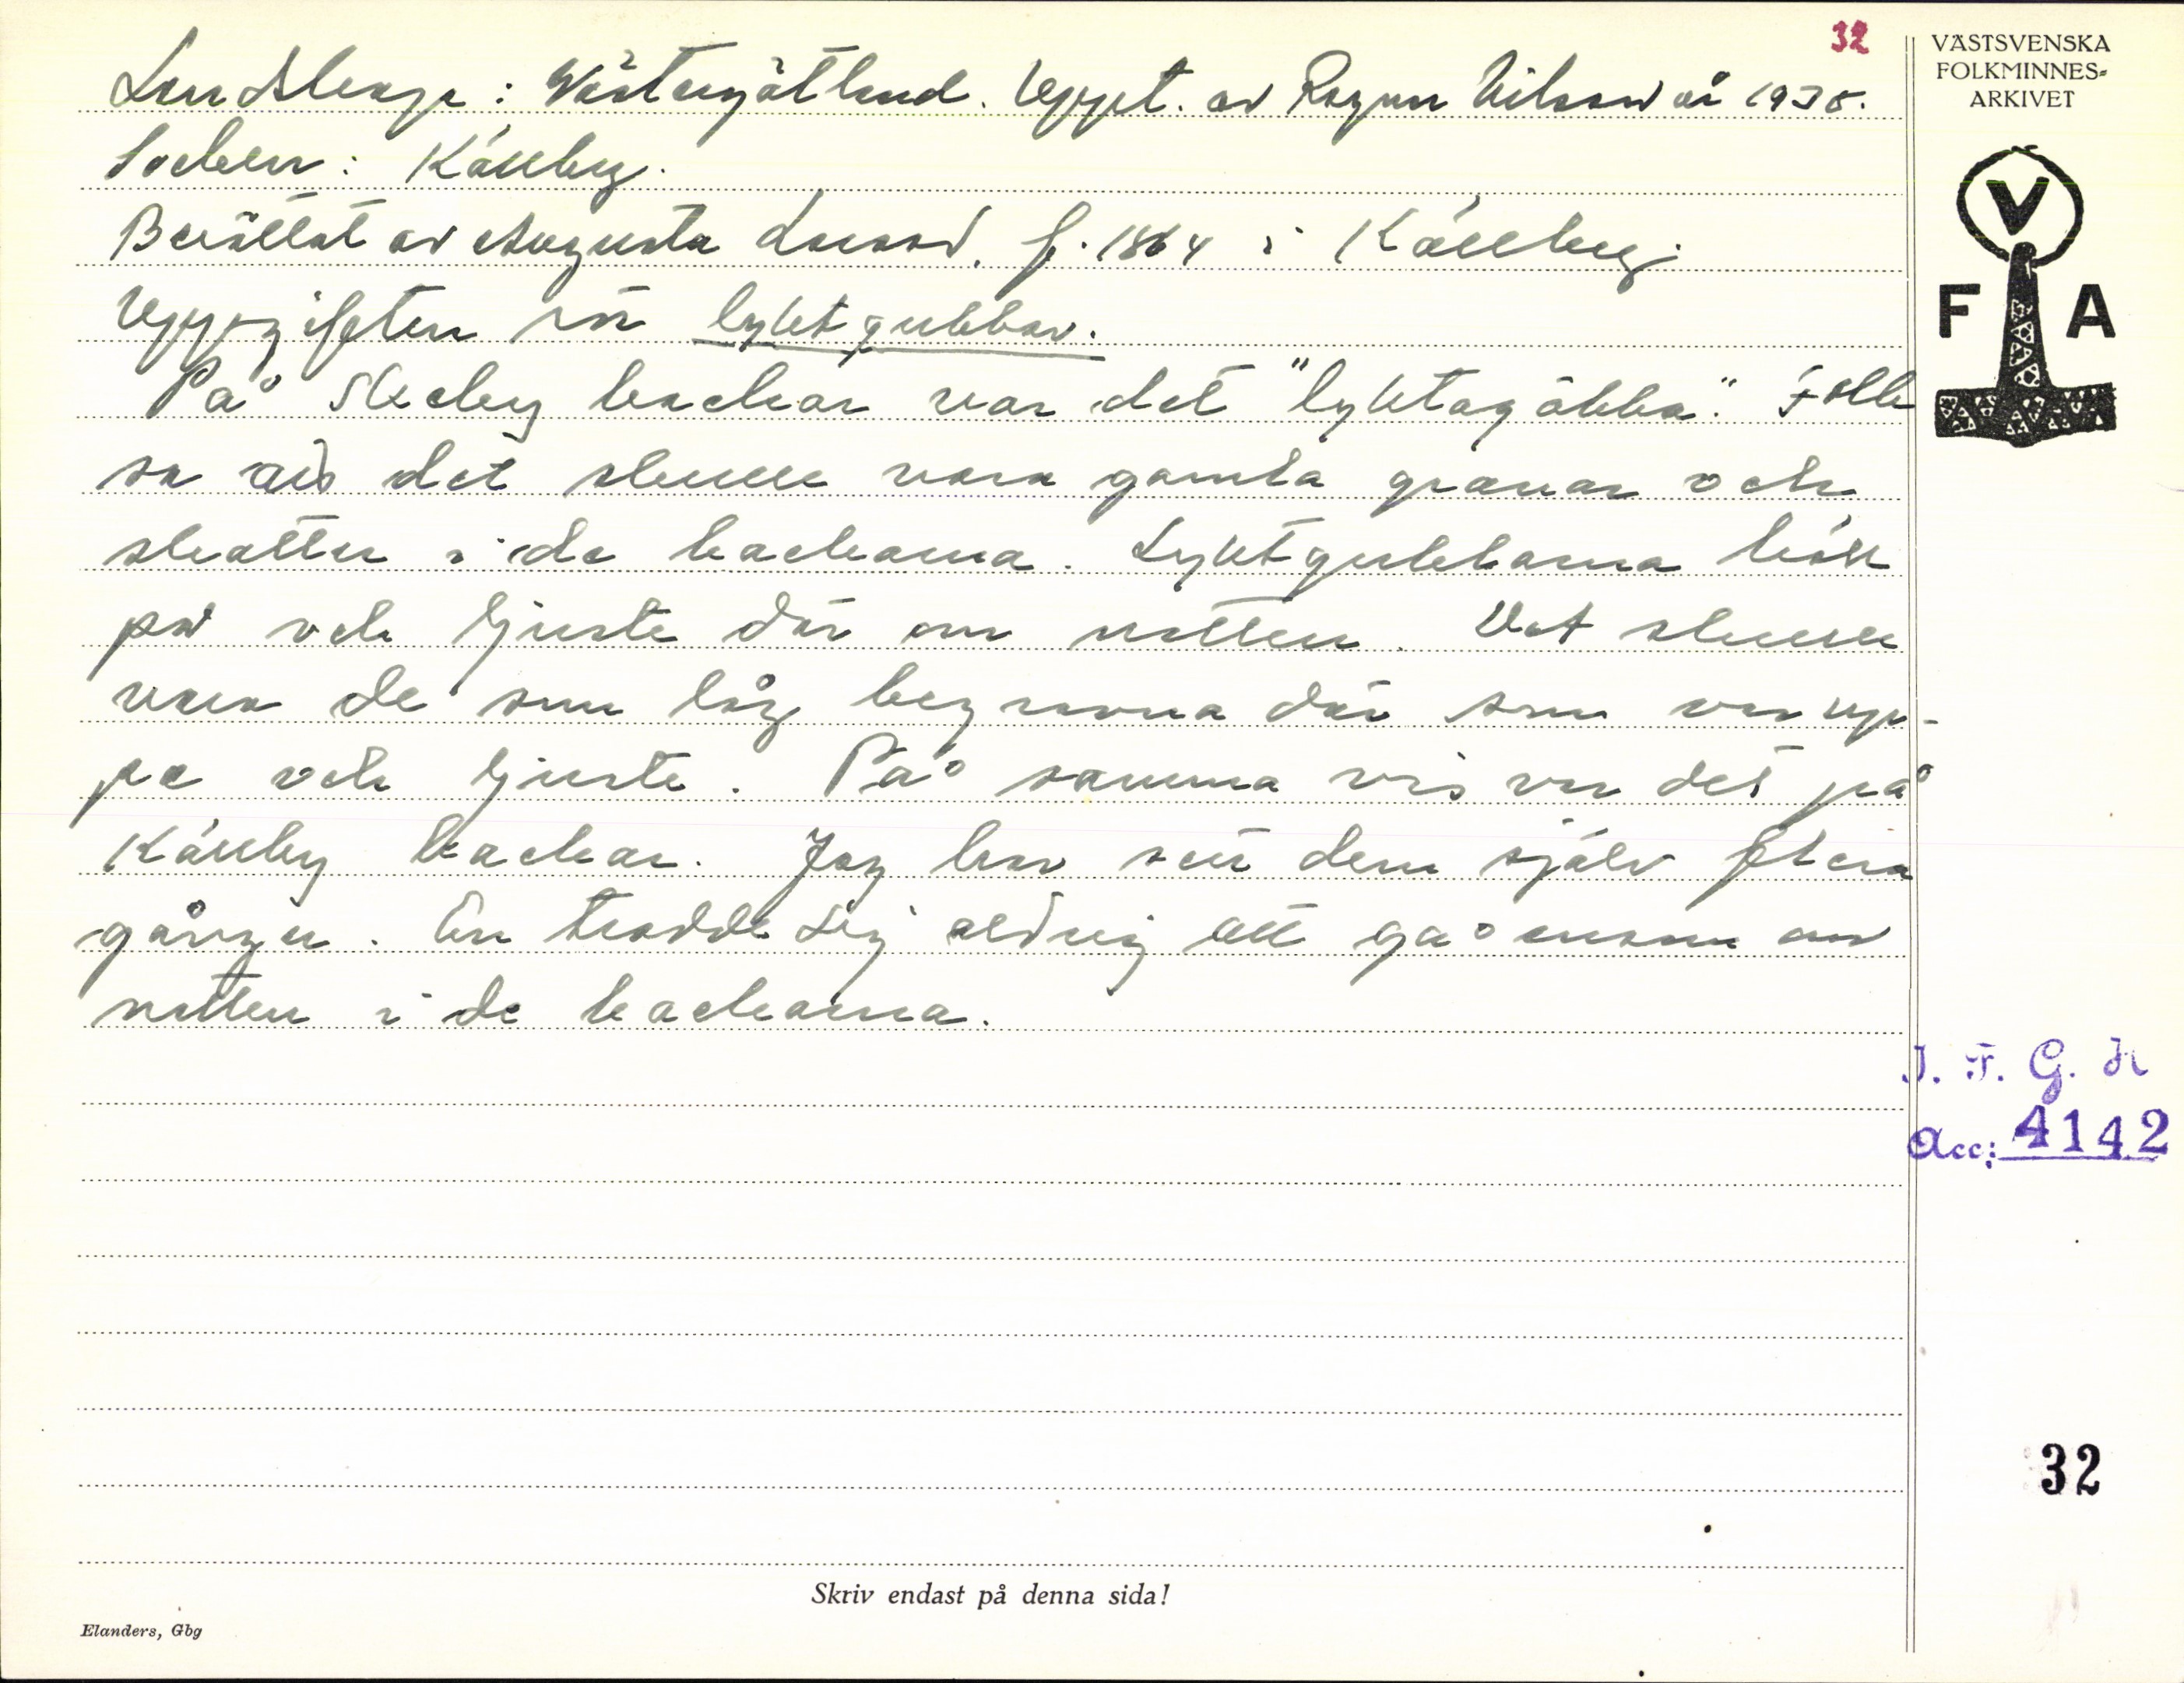 32
Landskap: Västergötland. Uppt. av Ragnar Nilsson år 1938.
Socken: Källby.
Berättat av Augusta Larsson, f. 1864 i Källby.
Uppgiften rör lyktgubbar.
På Skeby backar var det "lyktagöbba". Folk
sa att det skulle vara gamla gravar och
skatter i de backarna. Lyktgubbarna höll
på och ljuste där om natten. Det skulle
vara de som låg begravna där som var up-
pe och ljuste. På samma vis var det på
Källby backar. Jag har sett dem själv flera
gånger. En trodde sig aldrig att gå ensam om
natten i de backarna.
VÄSTSVENSKA
FOLKMINNES-
ARKIVET
V
F A
I. F. G. H
Acc: 4142
32
Skriv endast på denna sida!
Elanders, Gbg